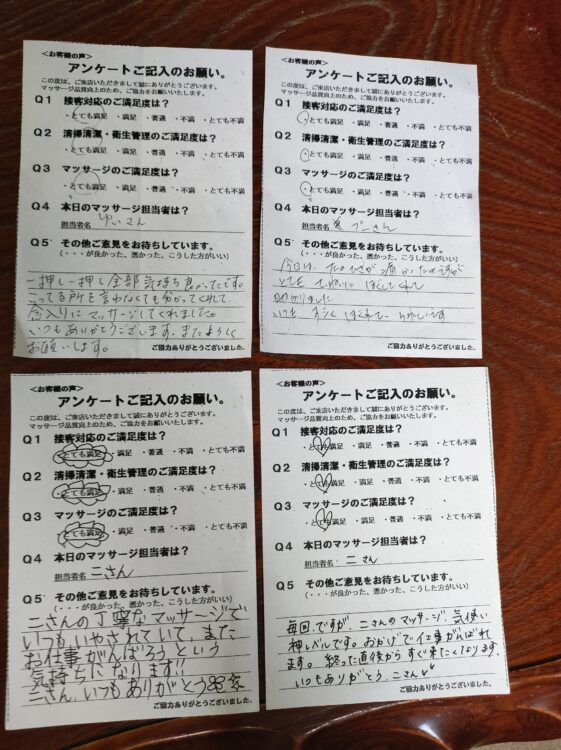 ＜お客様の声＞
アンケートご記入のお願い。
この度は、ご来店いただきまして誠にありがとうございます。
マッサージ品質向上のため、ご協力をお願いいたします。
Q1 接客対応のご満足度は？
・とても満足 ・満足 ・普通 ・不満 ・とても不満
Q2 清掃清潔・衛生管理のご満足度は？
・とても満足 ・満足 ・普通 ・不満 ・とても不満
Q3 マッサージのご満足度は？
・とても満足 ・満足 ・普通 ・不満 ・とても不満
Q4 本日のマッサージ担当者は？
担当者名 ゆいさん
Q5 その他ご意見をお待ちしています。
（・・・が良かった、悪かった、こうした方がいい）
一押し一押し全部気持ち良かったです。
こってる所を言わなくても分かってくれて、
念入りにマッサージしてくれました。
いつもありがとうございます。またよろしく
お願いします。
ご協力ありがとうございました。
＜お客様の声＞
アンケートご記入のお願い。
この度は、ご来店いただきまして誠にありがとうございます。
マッサージ品質向上のため、ご協力をお願いいたします。
Q1 接客対応のご満足度は？
・とても満足 ・満足 ・普通 ・不満 ・とても不満
Q2 清掃清潔・衛生管理のご満足度は？
・とても満足 ・満足 ・普通 ・不満 ・とても不満
Q3 マッサージのご満足度は？
・とても満足 ・満足 ・普通 ・不満 ・とても不満
Q4 本日のマッサージ担当者は？
担当者名 さん
Q5 その他ご意見をお待ちしています。
（・・・が良かった、悪かった、こうした方がいい）
今日は、 が痛かったのですが
とても ていねいに ほぐしてくれて
助かりました
いつも ほぐれて、 うれしいです
ご協力ありがとうございました。
＜お客様の声＞
アンケートご記入のお願い。
この度は、ご来店いただきまして誠にありがとうございます。
マッサージ品質向上のため、ご協力をお願いいたします。
Q1 接客対応のご満足度は？
・とても満足 ・満足 ・普通 ・不満 ・とても不満
Q2 清掃清潔・衛生管理のご満足度は？
・とても満足 ・満足 ・普通 ・不満 ・とても不満
Q3 マッサージのご満足度は？
・とても満足 ・満足 ・普通 ・不満 ・とても不満
Q4 本日のマッサージ担当者は？
担当者名 二さん
Q5 その他ご意見をお待ちしています。
（・・・が良かった、悪かった、こうした方がいい）
二さんの丁寧なマッサージで
いつもいやされていて、また
お仕事がんばろうという
気持ちになります!!
二さん、いつもありがとう
ご協力ありがとうございました。
＜お客様の声＞
アンケートご記入のお願い。
この度は、ご来店いただきまして誠にありがとうございます。
マッサージ品質向上のため、ご協力をお願いいたします。
Q1 接客対応のご満足度は？
・とても満足 ・満足 ・普通 ・不満 ・とても不満
Q2 清掃清潔・衛生管理のご満足度は？
・とても満足 ・満足 ・普通 ・不満 ・とても不満
Q3 マッサージのご満足度は？
・とても満足 ・満足 ・普通 ・不満 ・とても不満
Q4 本日のマッサージ担当者は？
担当者名 二さん
Q5 その他ご意見をお待ちしています。
（・・・が良かった、悪かった、こうした方がいい）
毎回ですが、二さんのマッサージ、気使い
神レベルです。おかげで仕事がんばれ
ます。終った直後からすぐ来たくなります。
いつもありがとう、二さん
ご協力ありがとうございました。